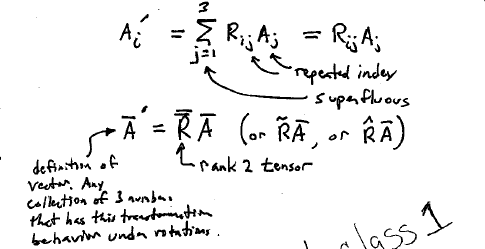 A_i' = Σ_{j=1}^{3} R_{ij} A_j = R_{ij} A_j
repeated index
superfluous
A̅' = R̿ A̅ (or R̃A̅, or R̂A̅)
rank 2 tensor
definition of
vector. Any
collection of 3 numbers
that has this transformation
behavior under rotations.
class 1